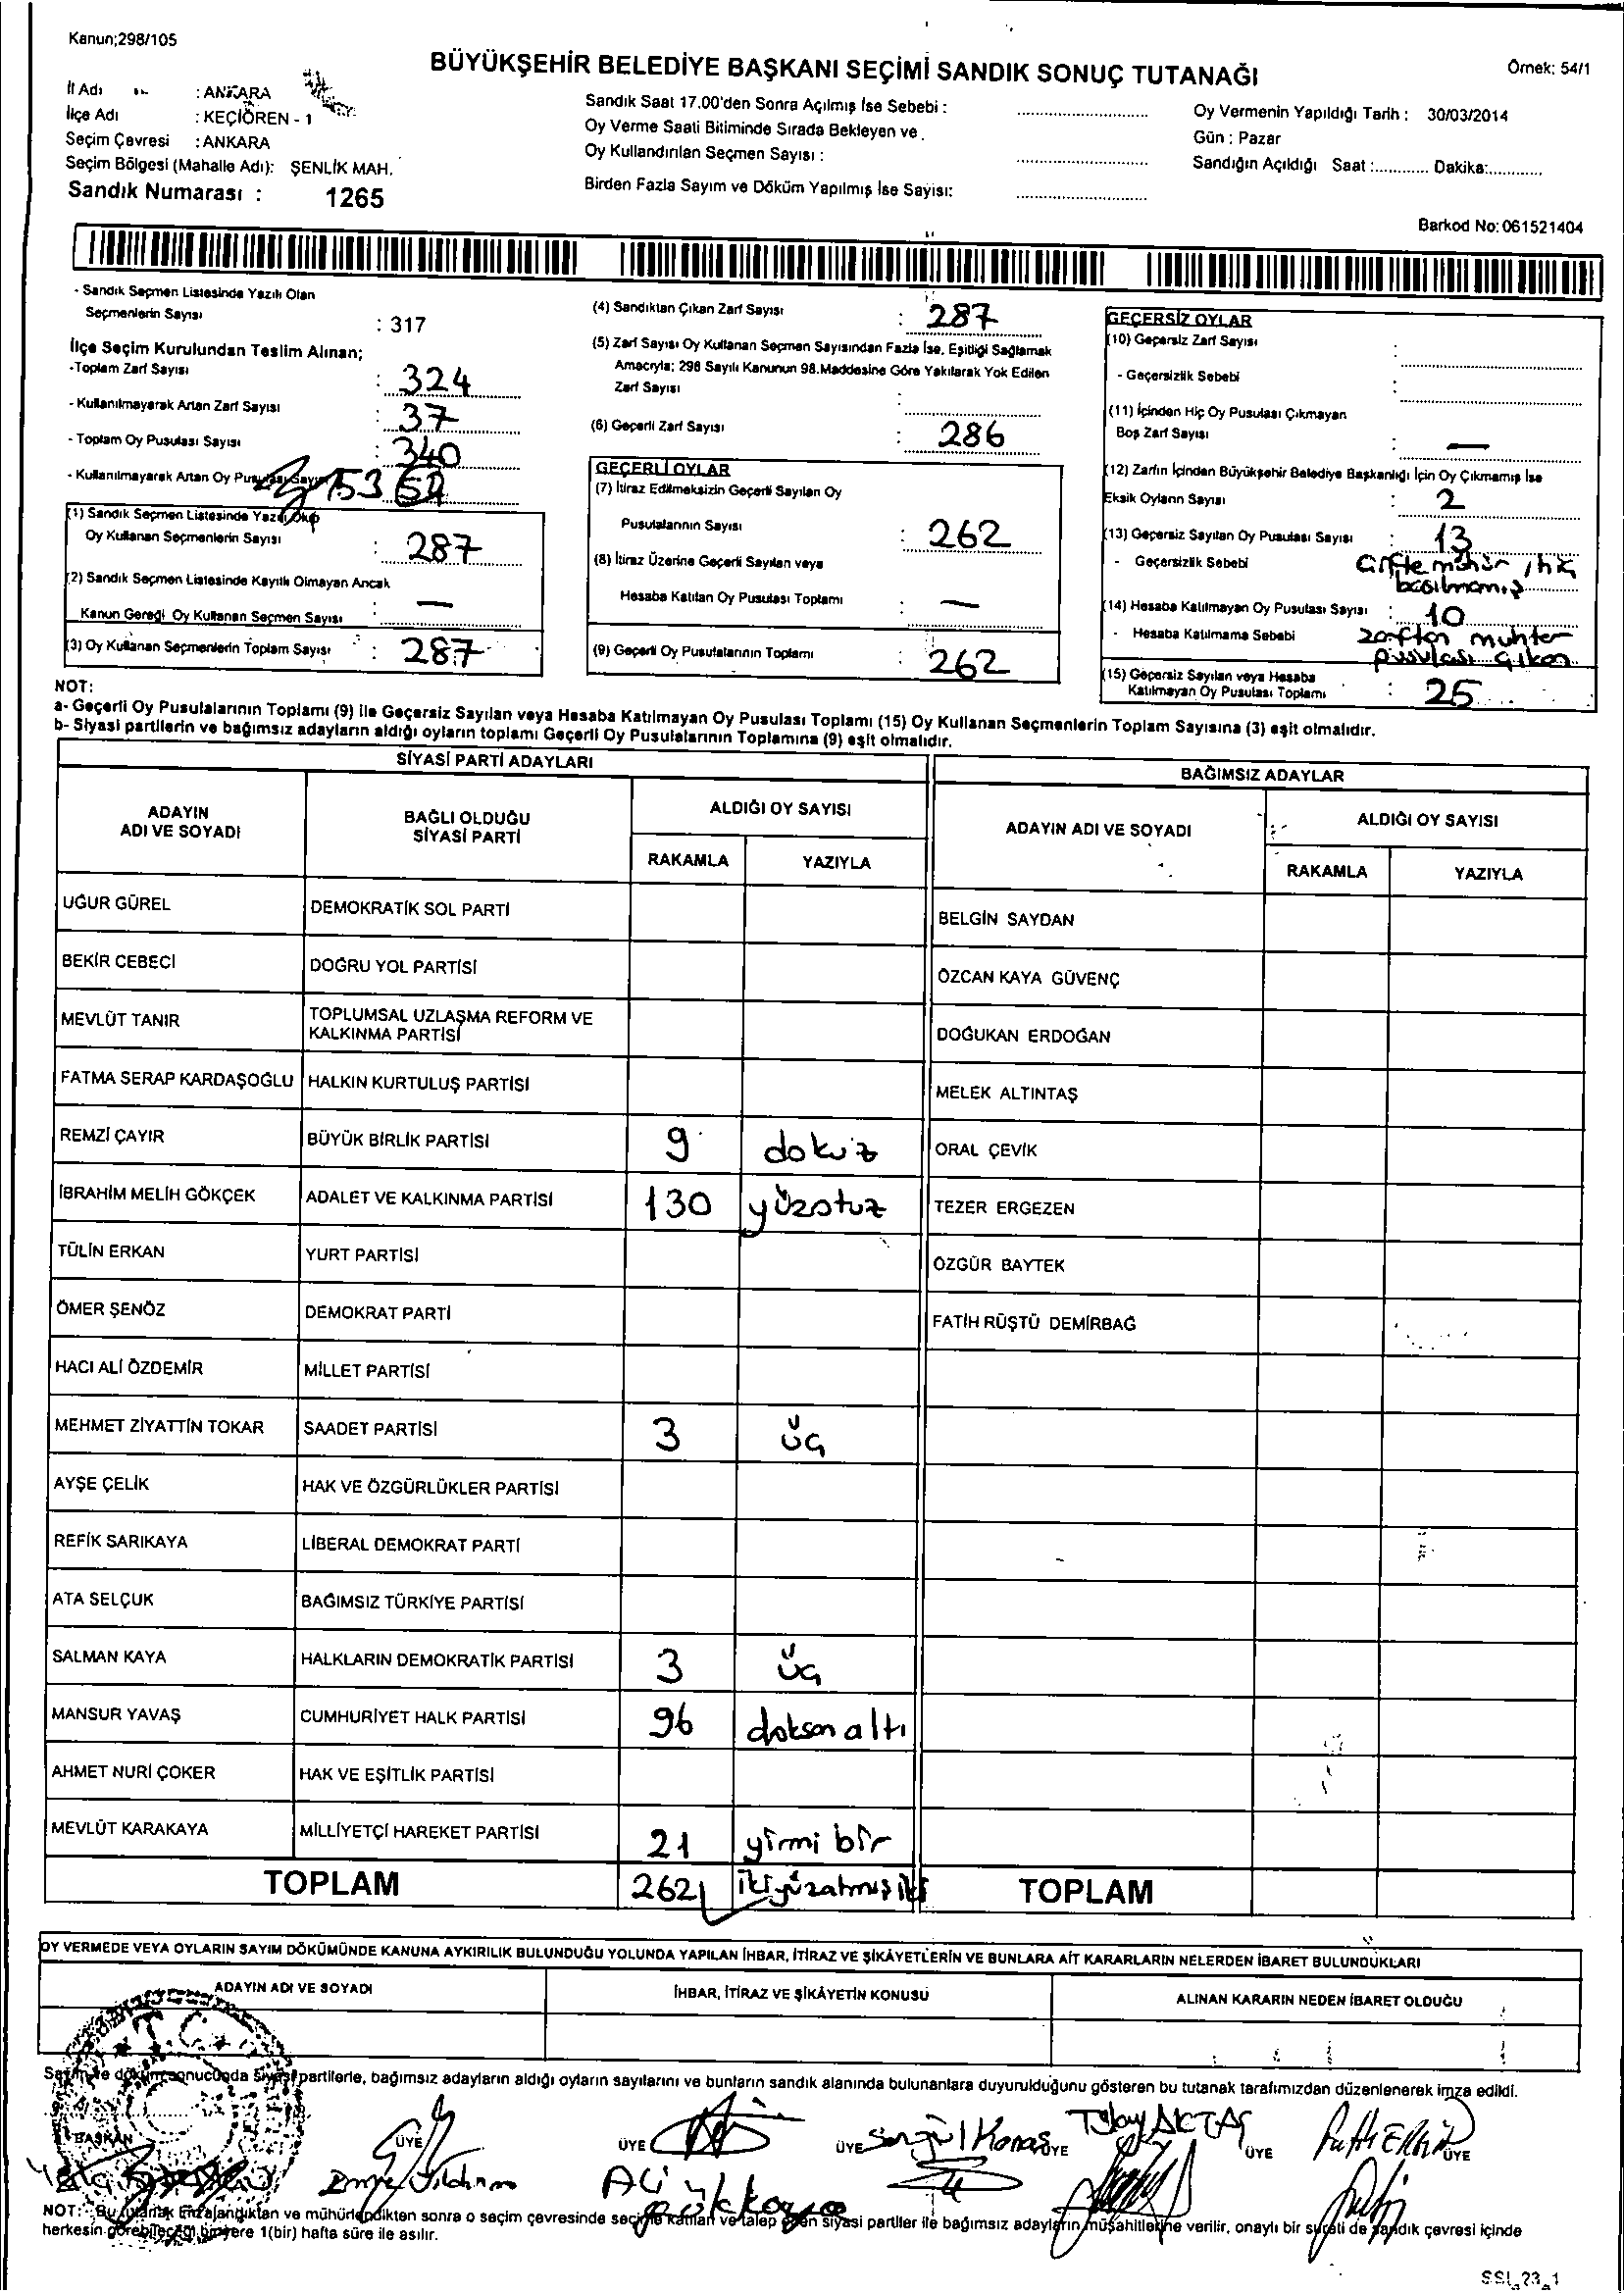 Kanun;298/105
BÜYÜKŞEHİR BELEDİYE BAŞKANI SEÇİMİ SANDIK SONUÇ TUTANAĞI
Örnek: 54/1
İl Adı : ANKARA
İlçe Adı : KEÇİÖREN - 1
Seçim Çevresi : ANKARA
Seçim Bölgesi (Mahalle Adı): ŞENLİK MAH.
Sandık Numarası : 1265
Sandık Saat 17.00'den Sonra Açılmış İse Sebebi :
Oy Verme Saati Bitiminde Sırada Bekleyen ve
Oy Kullandırılan Seçmen Sayısı :
Birden Fazla Sayım ve Döküm Yapılmış İse Sayısı:
Oy Vermenin Yapıldığı Tarih : 30/03/2014
Gün : Pazar
Sandığın Açıldığı Saat :............. Dakika:.............
Barkod No: 061521404
- Sandık Seçmen Listesinde Yazılı Olan
Seçmenlerin Sayısı : 317
İlçe Seçim Kurulundan Teslim Alınan;
-Toplam Zarf Sayısı : 324
- Kullanılmayarak Artan Zarf Sayısı : 37
- Toplam Oy Pusulası Sayısı : 340
- Kullanılmayarak Artan Oy Pusulası Sayısı 53
(1) Sandık Seçmen Listesinde Yazılı Olup
Oy Kullanan Seçmenlerin Sayısı : 287
(2) Sandık Seçmen Listesinde Kayıtlı Olmayan Ancak
Kanun Gereği Oy Kullanan Seçmen Sayısı : —
(3) Oy Kullanan Seçmenlerin Toplam Sayısı : 287
(4) Sandıktan Çıkan Zarf Sayısı : 287
(5) Zarf Sayısı Oy Kullanan Seçmen Sayısından Fazla İse, Eşitliği Sağlamak
Amacıyla; 298 Sayılı Kanunun 98.Maddesine Göre Yakılarak Yok Edilen
Zarf Sayısı :
(6) Geçerli Zarf Sayısı : 286
GEÇERLİ OYLAR
(7) İtiraz Edilmeksizin Geçerli Sayılan Oy
Pusulalarının Sayısı : 262
(8) İtiraz Üzerine Geçerli Sayılan veya
Hesaba Katılan Oy Pusulası Toplamı : —
(9) Geçerli Oy Pusulalarının Toplamı : 262
GEÇERSİZ OYLAR
(10) Geçersiz Zarf Sayısı :
- Geçersizlik Sebebi :
(11) İçinden Hiç Oy Pusulası Çıkmayan
Boş Zarf Sayısı : —
(12) Zarfın İçinden Büyükşehir Belediye Başkanlığı İçin Oy Çıkmamış İse
Eksik Oyların Sayısı : 2
(13) Geçersiz Sayılan Oy Pusulası Sayısı : 13
- Geçersizlik Sebebi Çifte mühür, hiç
basılmamış
(14) Hesaba Katılmayan Oy Pusulası Sayısı : 10
- Hesaba Katılmama Sebebi zarftan muhtar
pusulası çıkan
(15) Geçersiz Sayılan veya Hesaba
Katılmayan Oy Pusulası Toplamı : 25
NOT:
a- Geçerli Oy Pusulalarının Toplamı (9) ile Geçersiz Sayılan veya Hesaba Katılmayan Oy Pusulası Toplamı (15) Oy Kullanan Seçmenlerin Toplam Sayısına (3) eşit olmalıdır.
b- Siyasi partilerin ve bağımsız adayların aldığı oyların toplamı Geçerli Oy Pusulalarının Toplamına (9) eşit olmalıdır.
SİYASİ PARTİ ADAYLARI
BAĞIMSIZ ADAYLAR
ADAYIN ADI VE SOYADI
BAĞLI OLDUĞU SİYASİ PARTİ
ALDIĞI OY SAYISI
RAKAMLA YAZIYLA
ADAYIN ADI VE SOYADI
ALDIĞI OY SAYISI
RAKAMLA YAZIYLA
UĞUR GÜREL DEMOKRATİK SOL PARTİ BELGİN SAYDAN
BEKİR CEBECİ DOĞRU YOL PARTİSİ ÖZCAN KAYA GÜVENÇ
MEVLÜT TANIR TOPLUMSAL UZLAŞMA REFORM VE KALKINMA PARTİSİ DOĞUKAN ERDOĞAN
FATMA SERAP KARDAŞOĞLU HALKIN KURTULUŞ PARTİSİ MELEK ALTINTAŞ
REMZİ ÇAYIR BÜYÜK BİRLİK PARTİSİ 9 dokuz ORAL ÇEVİK
İBRAHİM MELİH GÖKÇEK ADALET VE KALKINMA PARTİSİ 130 yüzotuz TEZER ERGEZEN
TÜLİN ERKAN YURT PARTİSİ ÖZGÜR BAYTEK
ÖMER ŞENÖZ DEMOKRAT PARTİ FATİH RÜŞTÜ DEMİRBAĞ
HACI ALİ ÖZDEMİR MİLLET PARTİSİ
MEHMET ZİYATTİN TOKAR SAADET PARTİSİ 3 üç
AYŞE ÇELİK HAK VE ÖZGÜRLÜKLER PARTİSİ
REFİK SARIKAYA LİBERAL DEMOKRAT PARTİ
ATA SELÇUK BAĞIMSIZ TÜRKİYE PARTİSİ
SALMAN KAYA HALKLARIN DEMOKRATİK PARTİSİ 3 üç
MANSUR YAVAŞ CUMHURİYET HALK PARTİSİ 96 doksan altı
AHMET NURİ ÇOKER HAK VE EŞİTLİK PARTİSİ
MEVLÜT KARAKAYA MİLLİYETÇİ HAREKET PARTİSİ 21 yirmi bir
TOPLAM 262 ikiyüzatmış iki TOPLAM
OY VERMEDE VEYA OYLARIN SAYIM DÖKÜMÜNDE KANUNA AYKIRILIK BULUNDUĞU YOLUNDA YAPILAN İHBAR, İTİRAZ VE ŞİKÂYETLERİN VE BUNLARA AİT KARARLARIN NELERDEN İBARET BULUNDUKLARI
ADAYIN ADI VE SOYADI İHBAR, İTİRAZ VE ŞİKÂYETİN KONUSU ALINAN KARARIN NEDEN İBARET OLDUĞU
T.C.
Sayım ve döküm sonucunda siyasi partilerle, bağımsız adayların aldığı oyların sayılarını ve bunların sandık alanında bulunanlara duyurulduğunu gösteren bu tutanak tarafımızdan düzenlenerek imza edildi.
BAŞKAN ÜYE ÜYE ÜYE ÜYE ÜYE ÜYE
Songül Konaş Tülay AKTAŞ
Emre Yıldırım Ali
NOT: Bu tutanak imzalandıktan ve mühürlendikten sonra o seçim çevresinde seçime katılan ve talep eden siyasi partiler ile bağımsız adayların müşahitlerine verilir, onaylı bir sureti de sandık çevresi içinde
herkesin görebileceği bir yere 1(bir) hafta süre ile asılır.
SSI_23_1